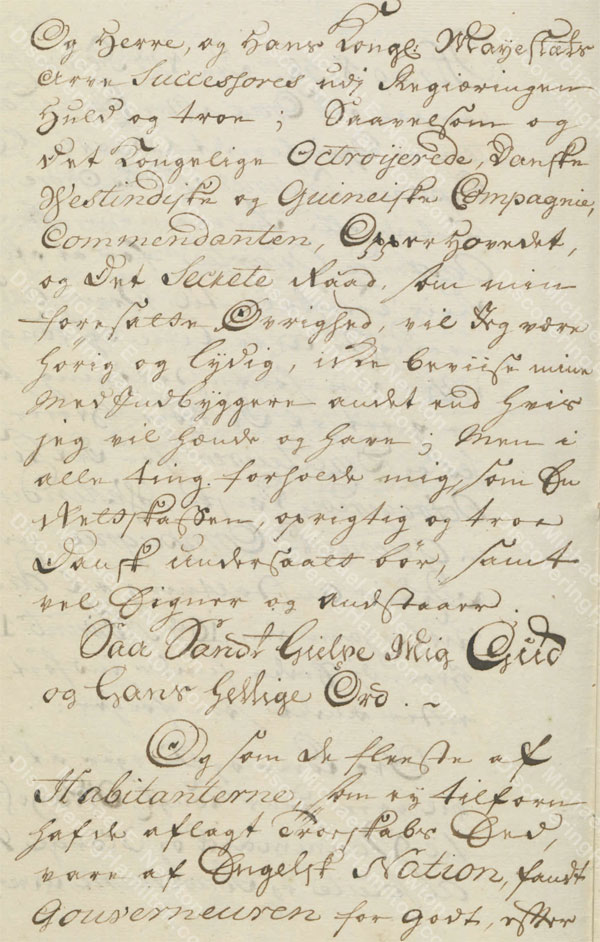 Og Herre, og Hans Kongl: Mayestæts
Arve Successores udj Regiæringen
Huld og troe; Saavelsom og
det Kongelige Octroyerede, Danske
Westindiske og Guineiske Compagnie,
Commendanten, Opper Hovedet,
og Det Secrete Raad, som min
foresatte Øvrighed, vil Jeg være
hørig og lydig, ikke beviise mine
MedJndbyggere andet end hvis
jeg vil hænde og have; Men i
alle ting forholde mig, som En
Retskaffen, oprigtig og troe
Dansk undersaatt bør, samt
vel Eigner og Anstaaer.
Saa Sandt hielpe Mig Gud
og hans hellige Ord.
Og som de fleeste af
Habitanterne, som ey tilforn
hafde aflagt Troeskabs Eed,
vare af Engelsk Nation, fandt
Gouverneuren for godt, efter